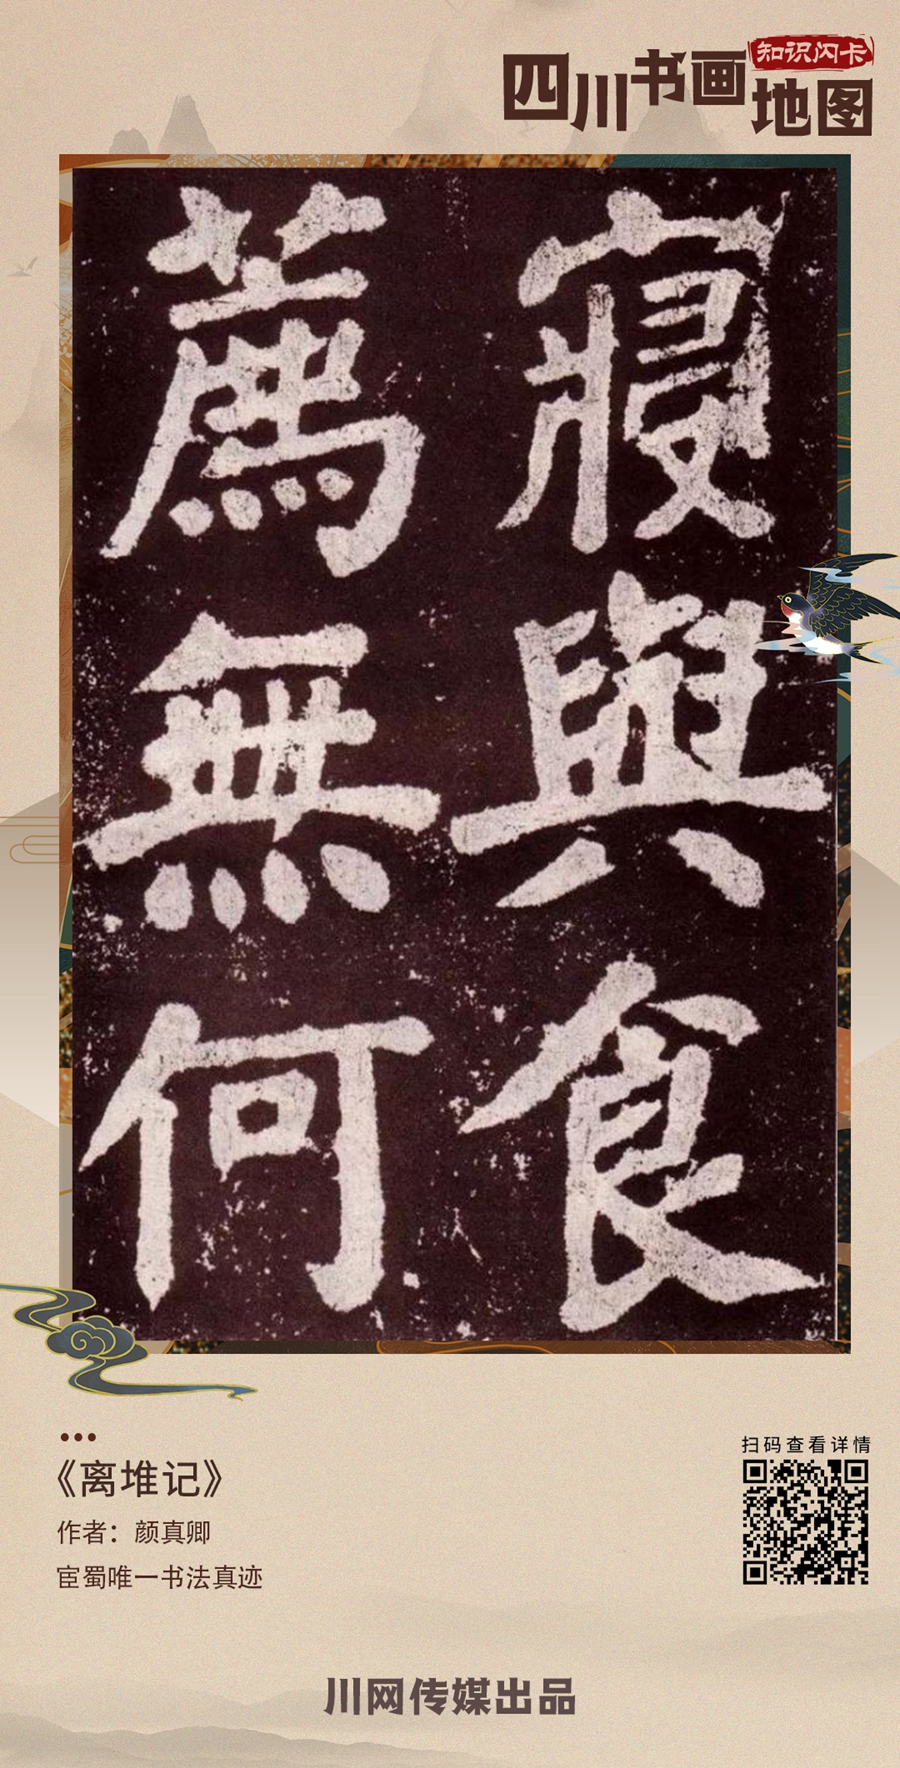 知识闪卡
四川书画地图
寝興食
薦無何
扫码查看详情
《离堆记》
作者：颜真卿
宦蜀唯一书法真迹
川网传媒出品